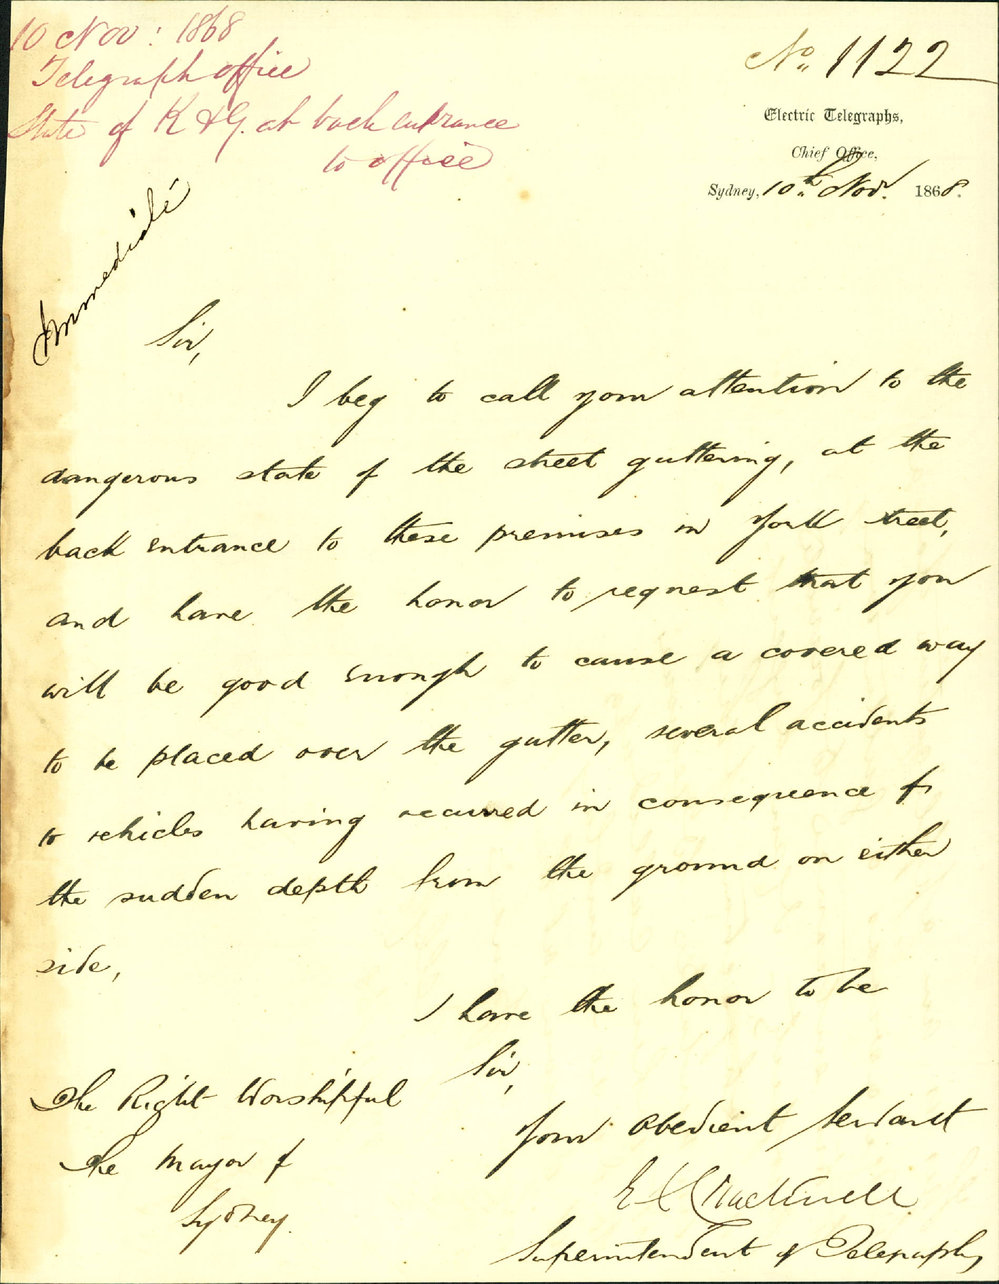 10 Nov: 1868
Telegraph office
State of K & G. at back entrance
to office
No. 1122
Electric Telegraphs,
Chief Office,
Sydney, 10th Nov. 1868.
Immediate
Sir,
I beg to call your attention to the
dangerous state of the street guttering, at the
back entrance to these premises in York street,
and have the honor to request that you
will be good enough to cause a covered way
to be placed over the gutter, several accidents
to vehicles having occurred in consequence of
the sudden depth from the ground on either
side,
I have the honor to be
Sir,
Your obedient Servant
E C Cracknell
Superintendent of Telegraphs
The Right Worshipful
The Mayor of
Sydney.